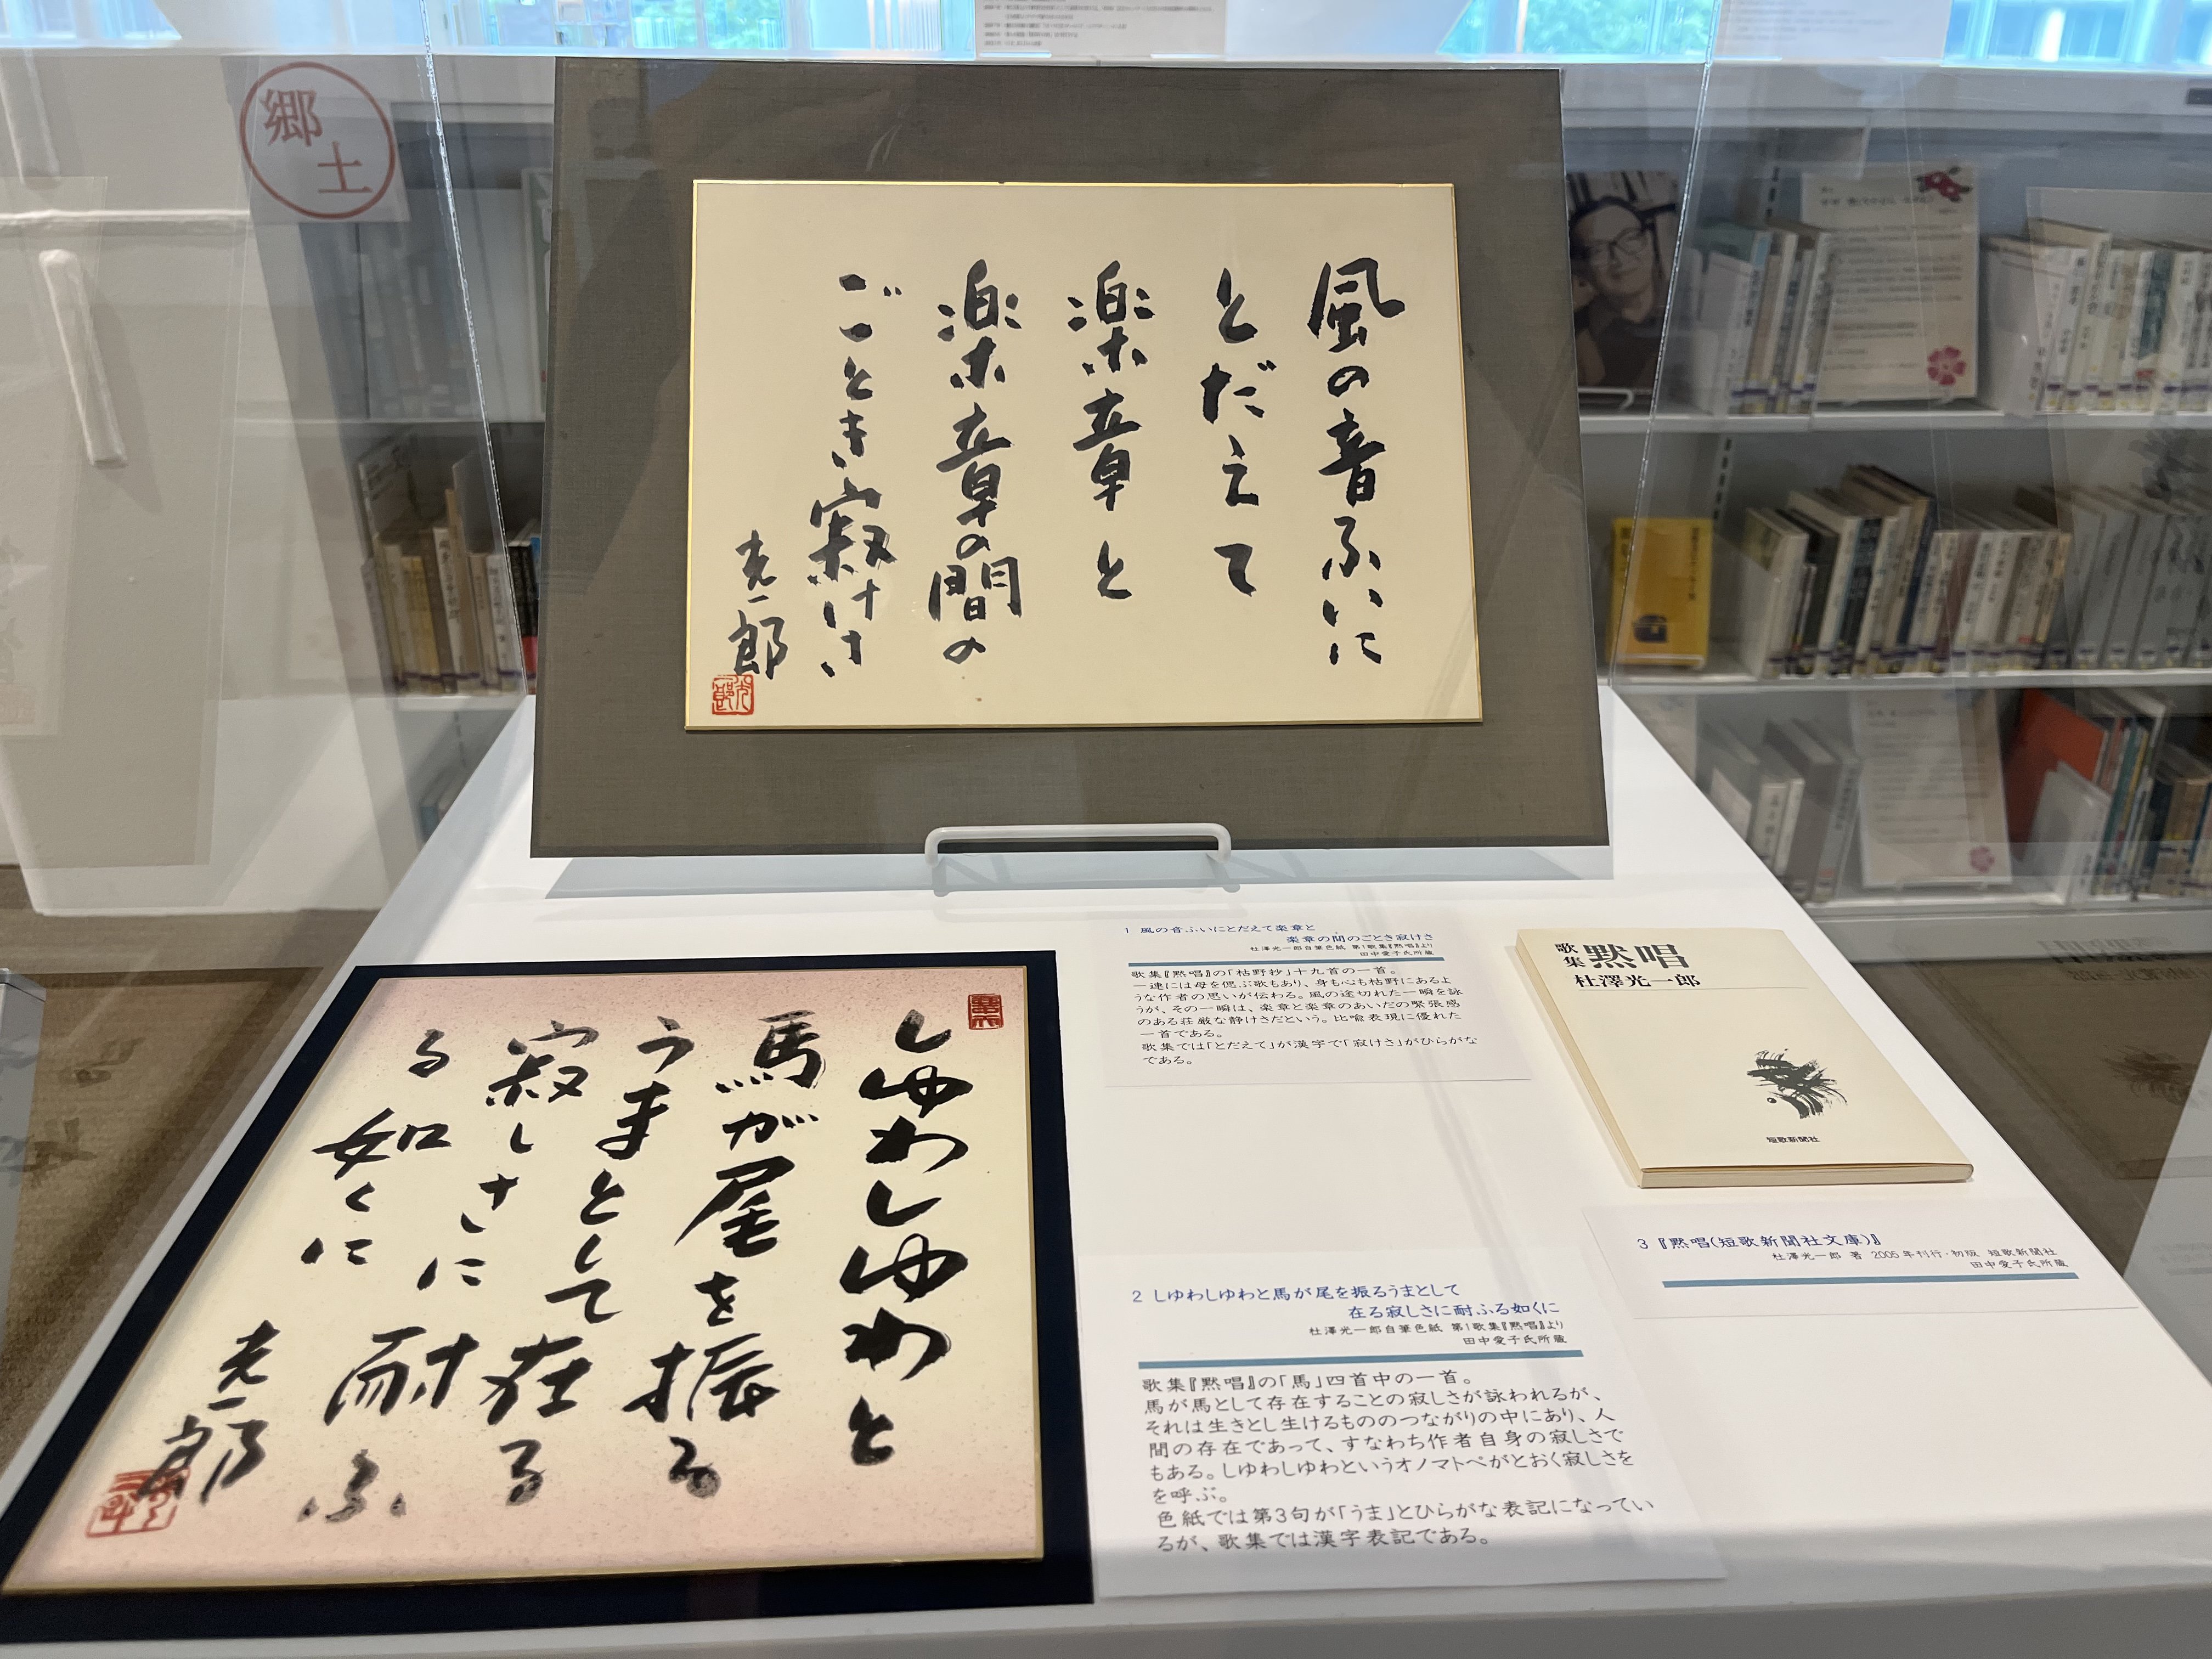 郷
土
風の音ふいに
とだえて
楽章と
楽章の間の
ごとき寂けさ
光一郎
しゆわしゆわと
馬が尾を振る
うまとして在る
寂しさに耐ふ
る如くに
光一郎
1 風の音ふいにとだえて楽章と
楽章の間のごとき寂けさ
杜澤光一郎自筆色紙 第1歌集『黙唱』より
田中愛子氏所蔵
歌集『黙唱』の「枯野抄」十九首の一首。
一連には母を偲ぶ歌もあり、身も心も枯野にあるよ
うな作者の思いが伝わる。風の途切れた一瞬を詠
うが、その一瞬は、楽章と楽章のあいだの緊張感
のある荘厳な静けさだという。比喩表現に優れた
一首である。
歌集では「とだえて」が漢字で「寂けさ」がひらがな
である。
歌集 黙唱
杜澤光一郎
短歌新聞社
2 しゆわしゆわと馬が尾を振るうまとして
在る寂しさに耐ふる如くに
杜澤光一郎自筆色紙 第1歌集『黙唱』より
田中愛子氏所蔵
歌集『黙唱』の「馬」四首中の一首。
馬が馬として存在することの寂しさが詠われるが、
それは生きとし生けるもののつながりの中にあり、人
間の存在であって、すなわち作者自身の寂しさで
もある。しゆわしゆわというオノマトペがとおく寂しさを
を呼ぶ。
色紙では第3句が「うま」とひらがな表記になってい
るが、歌集では漢字表記である。
3 『黙唱(短歌新聞社文庫)』
杜澤光一郎 著 2005年刊行・初版 短歌新聞社
田中愛子氏所蔵